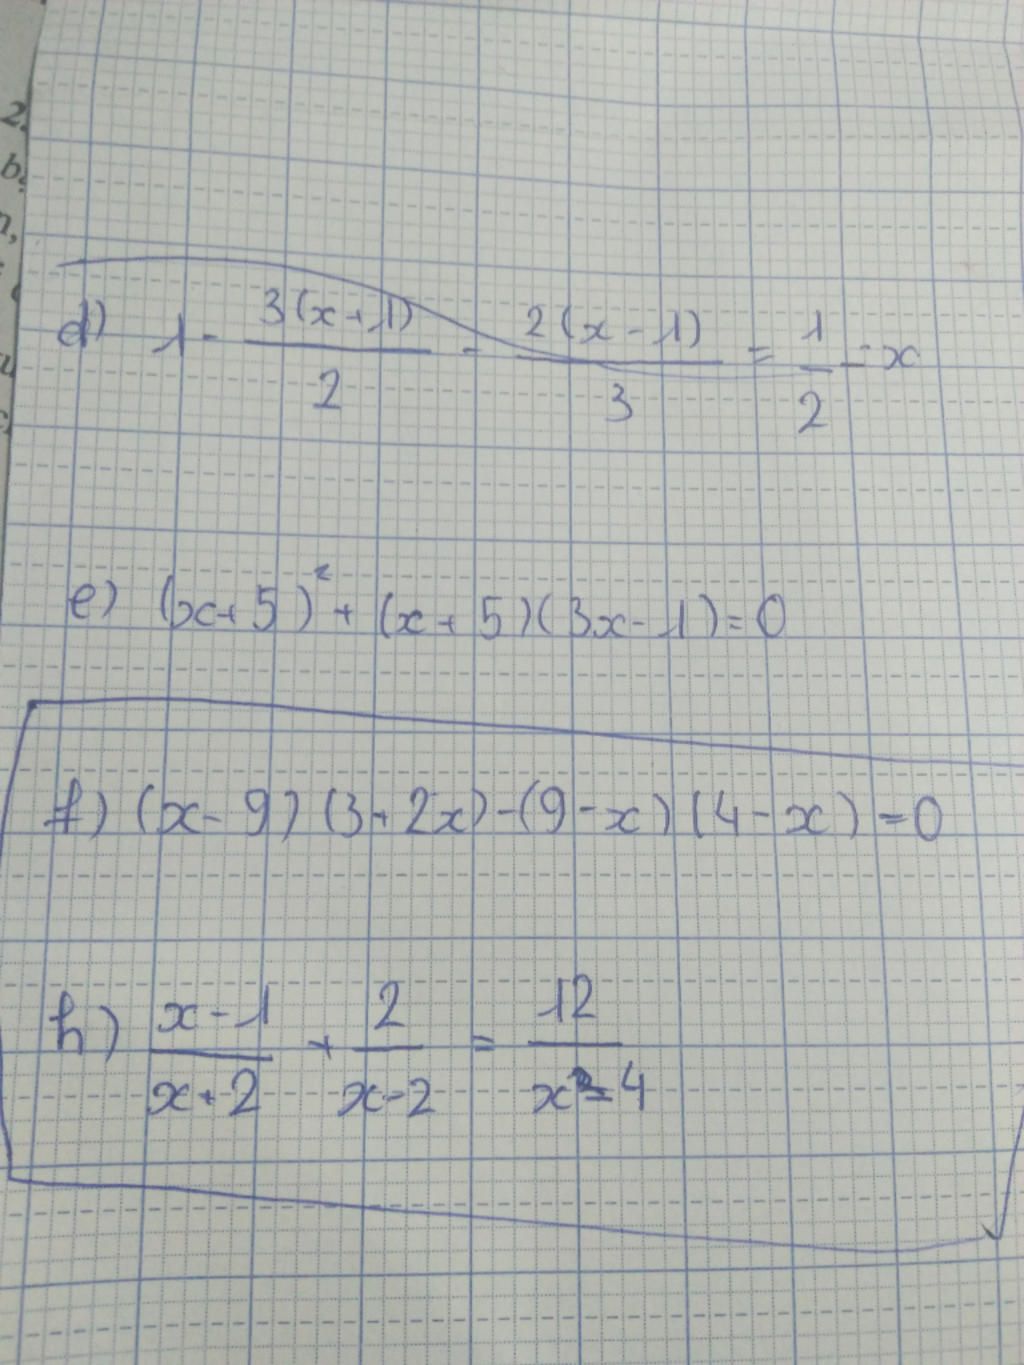 d) 1 - 3(x+1)/2 - 2(x-1)/3 = 1/2 - x
e) (x+5)² + (x+5)(3x-1)=0
f) (x-9)(3+2x)-(9-x)(4-x)=0
h) x-1/x+2 + 2/x-2 = 12/x²-4